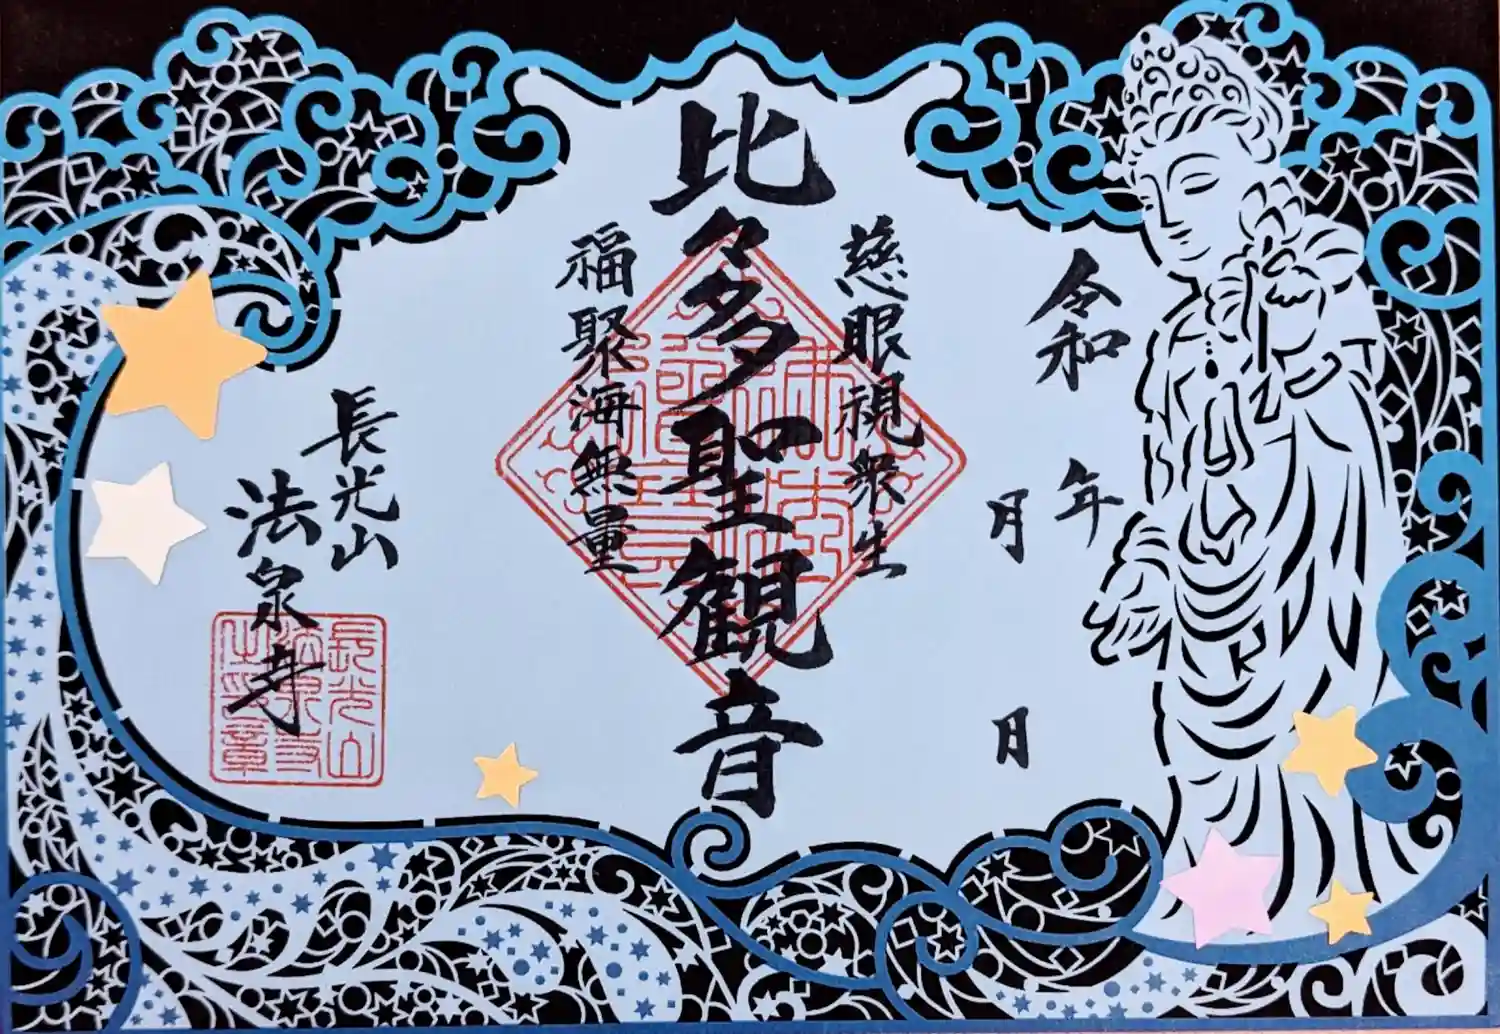 令和
年
月
日
慈眼視衆生
比々多聖観音
福聚海無量
長光山
法泉寺
長光山
法泉寺
之印章